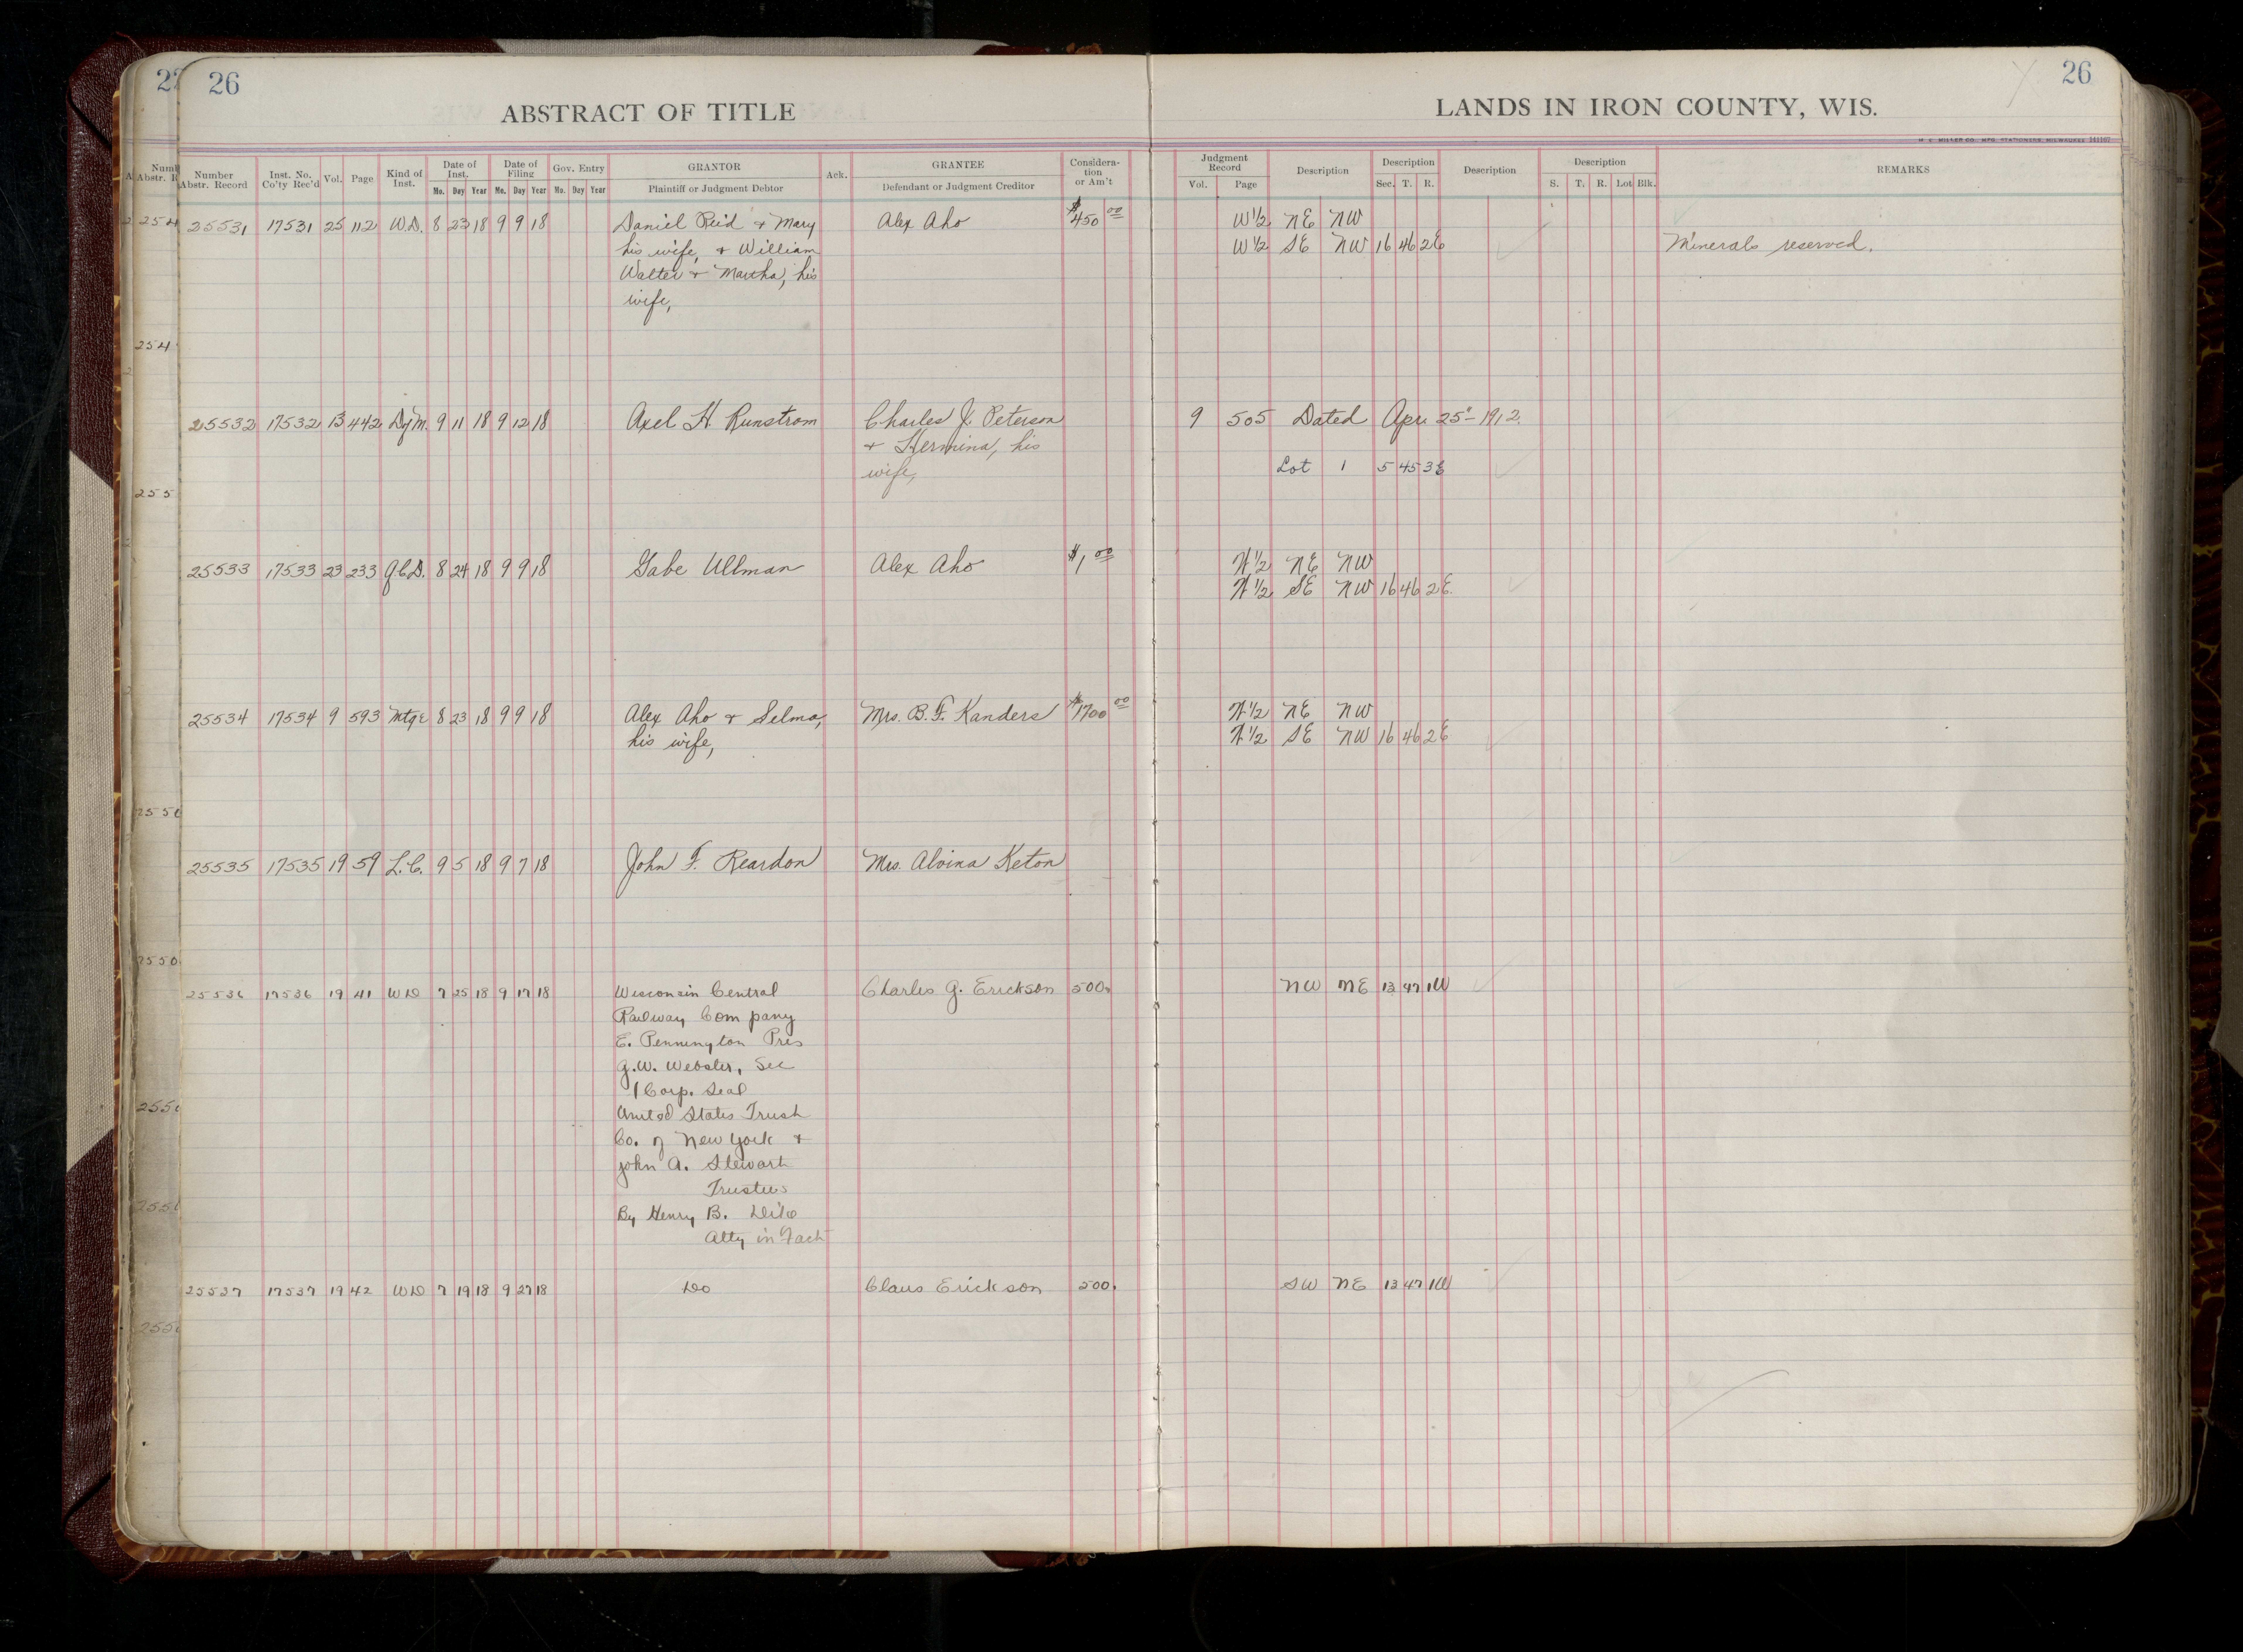 26
ABSTRACT OF TITLE
LANDS IN IRON COUNTY, WIS.
26
H. C. MILLER CO. MFG. STATIONERS MILWAUKEE
Number Abstr. Record | Inst. No. Co'ty Rec'd | Vol. | Page | Kind of Inst. | Date of Inst. Mo. Day Year | Date of Filing Mo. Day Year | Gov. Entry Mo. Day Year | GRANTOR Plaintiff or Judgment Debtor | Ack. | GRANTEE Defendant or Judgment Creditor | Considera-tion or Am't | Judgment Record Vol. Page | Description | Description Sec. T. R. | Description | Description S. T. R. Lot Blk. | REMARKS
25531 17531 25 112 W.D. 8 23 18 9 9 18 Daniel Reid & Mary Alex Aho $450 00 W 1/2 NE NW
his wife, & William W 1/2 SE NW 16 46 2E Minerals reserved.
Walter & Martha, his
wife,
25532 17532 13 442 9 11 18 9 12 18 Axel H. Runstrom Charles J. Peterson 9 505 Dated Apr. 25" 1912.
& Hermina, his
wife, Lot 1 5 45 3E
25533 17533 23 233 Q.C.D. 8 24 18 9 9 18 Gabe Ullman Alex Aho $1 00 W 1/2 NE NW
W 1/2 SE NW 16 46 2E.
25534 17534 9 593 Mtge 8 23 18 9 9 18 Alex Aho & Selma, Mrs. B. F. Kanders $1700 00 W 1/2 NE NW
his wife, W 1/2 SE NW 16 46 2E
25535 17535 19 59 L.C. 9 5 18 9 7 18 John F. Reardon Mrs. Alvina Keton
25536 17536 19 41 WD 7 25 18 9 17 18 Wisconsin Central Charles G. Erickson 500. NW NE 13 47 1W
Railway Company
E. Pennington Pres
G.W. Webster, Sec
Corp. Seal
United States Trust
Co. of New York &
John A. Stewart
Trustees
By Henry B.
Atty in Fact
25537 17537 19 42 WD 7 19 18 9 27 18 Do Claus Erickson 500. SW NE 13 47 1W